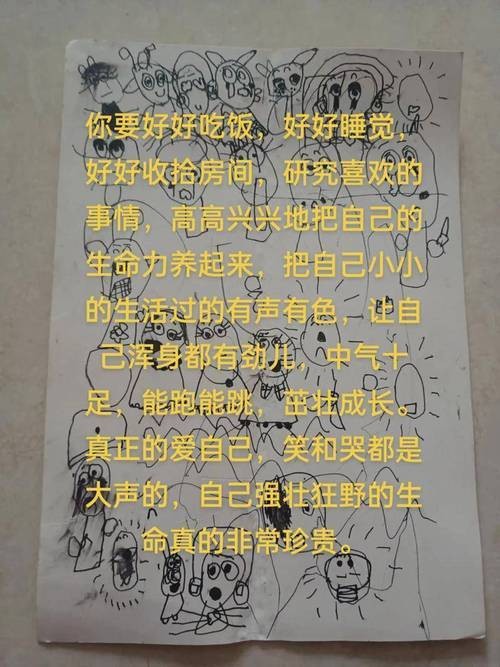 你要好好吃饭，好好睡觉，
好好收拾房间，研究喜欢的
事情，高高兴兴地把自己的
生命力养起来，把自己小小
的生活过的有声有色，让自
己浑身都有劲儿，中气十
足，能跑能跳，茁壮成长。
真正的爱自己，笑和哭都是
大声的，自己强壮狂野的生
命真的非常珍贵。